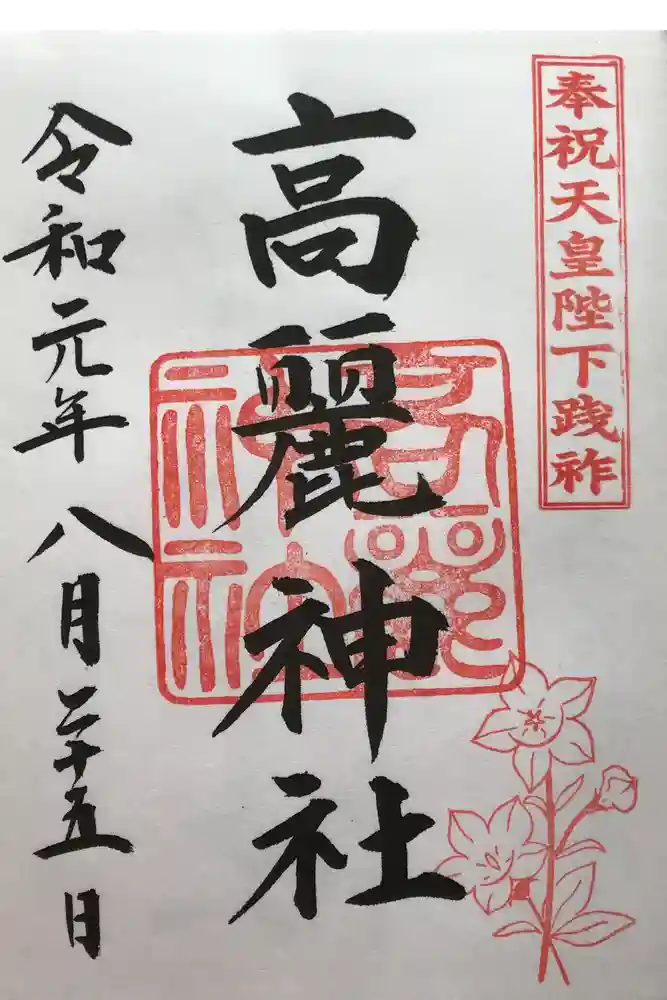 奉祝天皇陛下践祚
高麗神社
令和元年八月二十五日